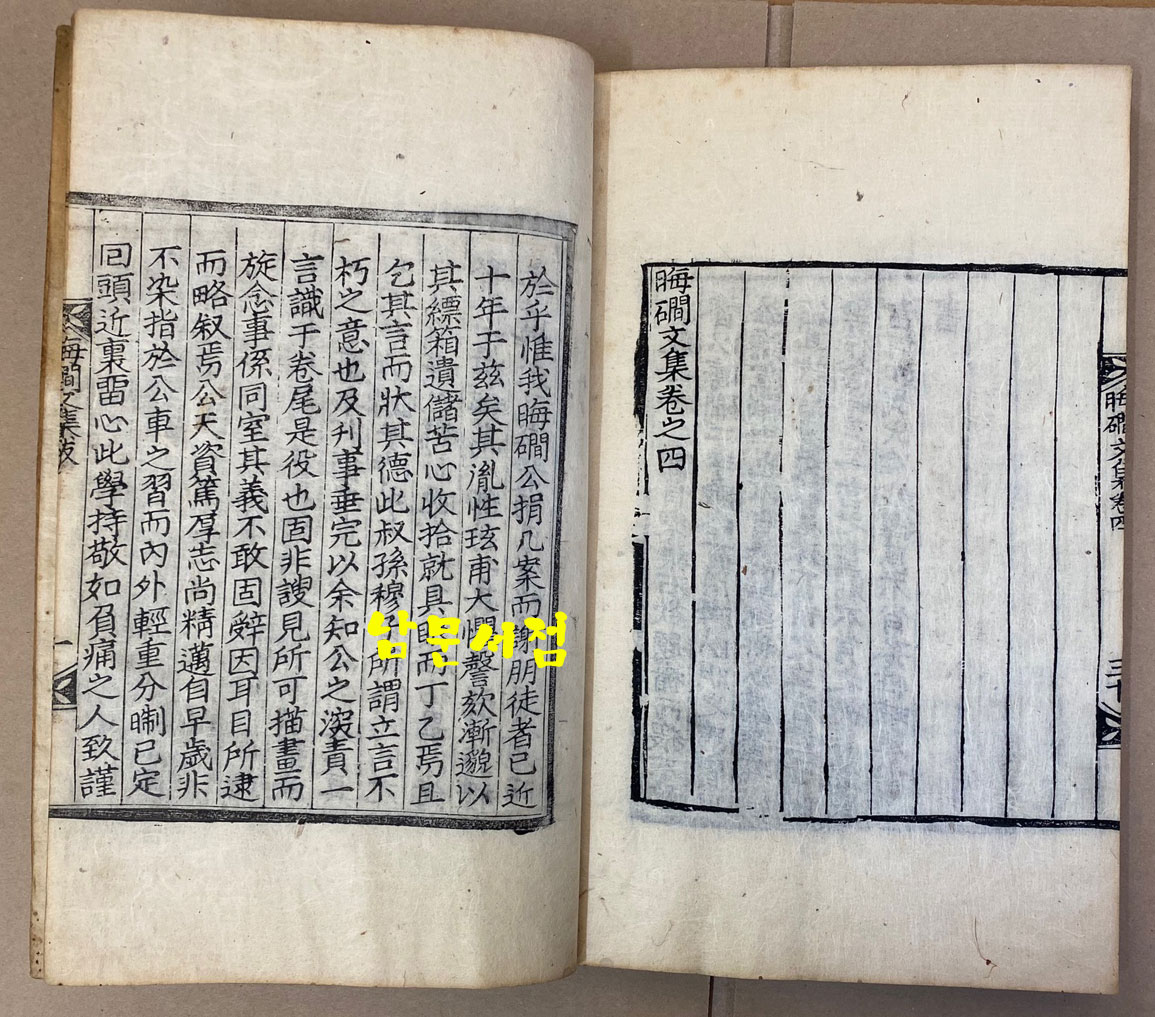 晦磵文集卷四
晦磵文集卷之四
於乎惟我晦磵公捐几案而謝朋徒者已近
十年于玆矣其胤性玹甫大懼謦欬漸邈以
其縹箱遺儲苦心收拾就具而丁乙焉且
乞其言而狀其德此叔孫穆子所謂立言不
朽之意也及刊事垂完以余知公之深責一
言識于卷尾是役也固非謏見所可描畫而
旋念事係同室其義不敢固辭因耳目所逮
而略叙焉公天資篤厚志尚精邁自早歲非
不染指於公車之習而內外輕重分晣已定
囘頭近裏畱心此學持敬如負痛之人致謹
晦磵文集跋
一
남문서점